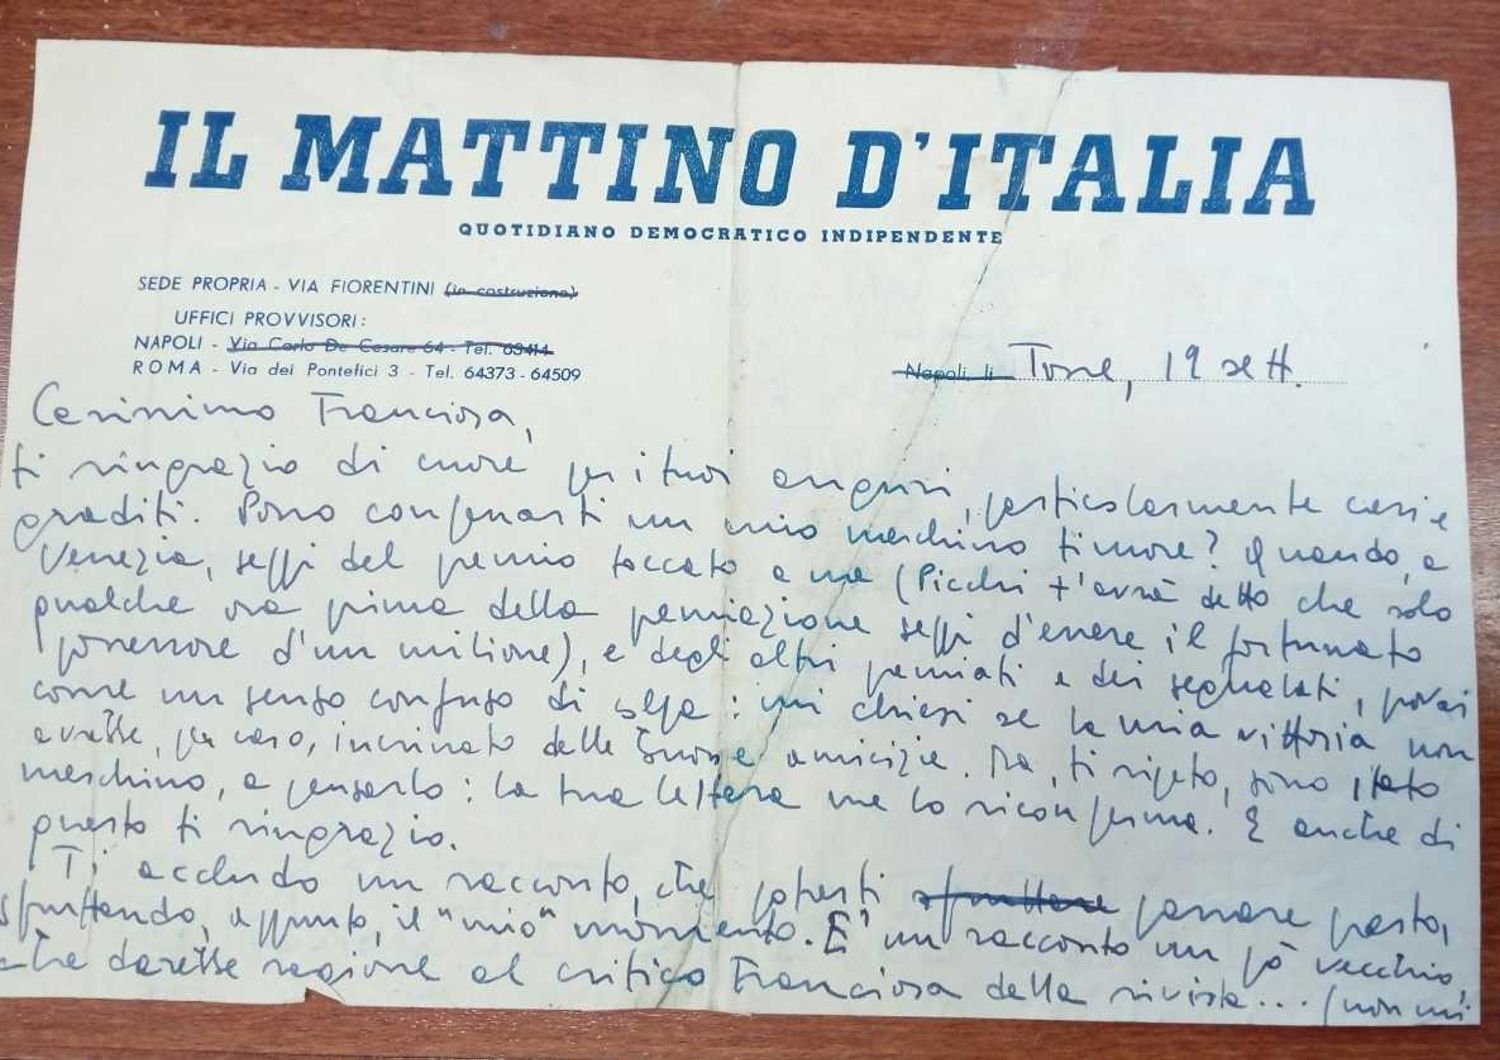 IL MATTINO D'ITALIA
QUOTIDIANO DEMOCRATICO INDIPENDENTE
SEDE PROPRIA - VIA FIORENTINI (in costruzione)
UFFICI PROVVISORI:
NAPOLI - Via Carlo De Cesare 64 - Tel. 63414
ROMA - Via dei Pontefici 3 - Tel. 64373 - 64509
Napoli, li Torre, 19 sett.
Carissimo Franciosa,
ti ringrazio di cuore per i tuoi auguri, particolarmente cari e
graditi. Posso confessarti un mio meschino timore? Quando, a
Venezia, seppi del premio toccato a me (Picchi t'avrà detto che solo
qualche ora prima della premiazione seppi d'essere il fortunato
possessore d'un milione), e degli altri premiati e dei segnalati, provai
come un senso confuso di colpa: mi chiesi se la mia vittoria non
avesse, per caso, incrinato delle buone amicizie. Ma, ti ripeto, sono stato
meschino, a pensarlo: la tua lettera me lo riconferma. E anche di
questo ti ringrazio.
Ti accludo un racconto, che potresti sfruttare passare presto,
sfruttando, appunto, il "mio" momento. E' un racconto un pò vecchio,
che darebbe ragione al critico Franciosa della rivista... (non mi